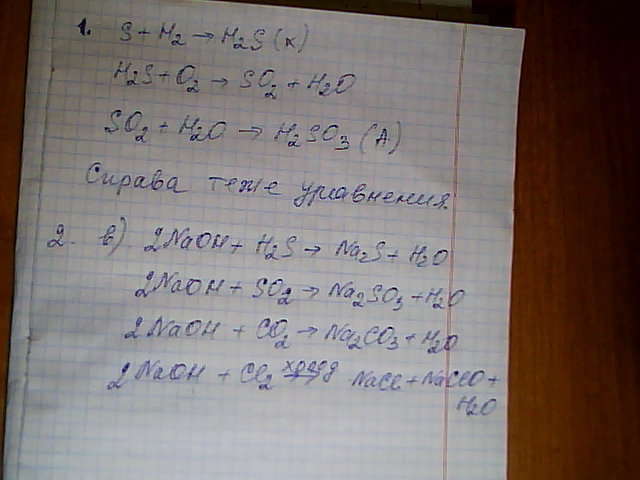 1. S + H2 → H2S (к)
H2S + O2 → SO2 + H2O
SO2 + H2O → H2SO3 (A)
Справа теже уравнения.
2. в) 2NaOH + H2S → Na2S + H2O
2NaOH + SO2 → Na2SO3 + H2O
2NaOH + CO2 → Na2CO3 + H2O
2NaOH + Cl2 холод →→ NaCl + NaClO +
H2O